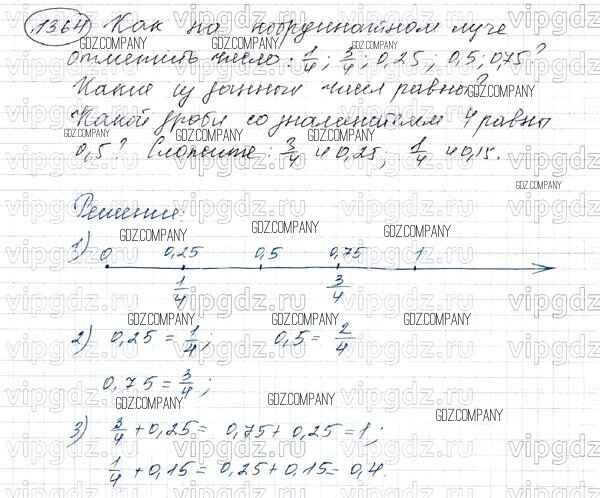 1364 Как на координатном луче
отметить число: 1/4; 3/4; 0,25; 0,5; 0,75?
Какие из данных чисел равны?
Какой дроби со знаменателем 4 равны
0,5? Сложите: 3/4 и 0,25; 1/4 и 0,15.
Решение:
1) 0 0,25 0,5 0,75 1
1/4 3/4
2) 0,25 = 1/4; 0,5 = 2/4
0,75 = 3/4;
3) 3/4 + 0,25 = 0,75 + 0,25 = 1;
1/4 + 0,15 = 0,25 + 0,15 = 0,4.
GDZ.COMPANY
vipgdz.ru